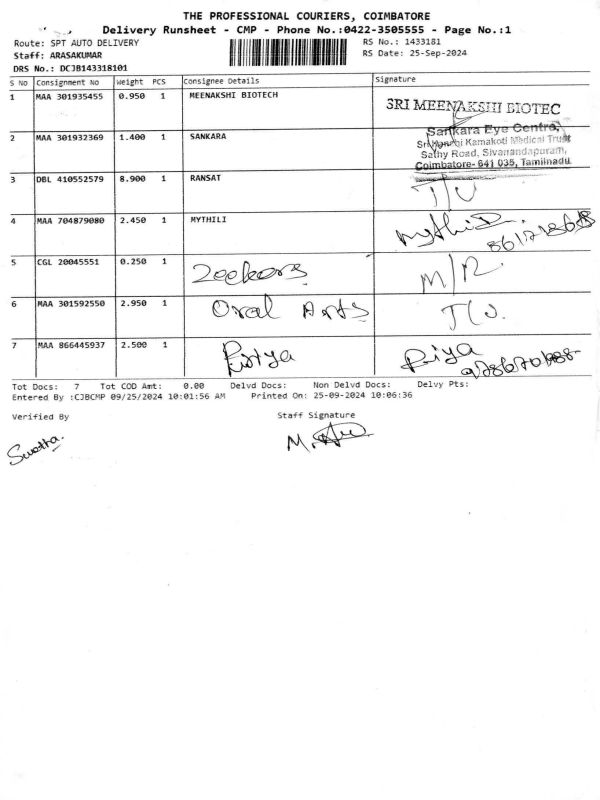 THE PROFESSIONAL COURIERS, COIMBATORE
Delivery Runsheet - CMP - Phone No.:0422-3505555 - Page No.:1
Route: SPT AUTO DELIVERY RS No.: 1433181
Staff: ARASAKUMAR RS Date: 25-Sep-2024
DRS No.: DCJB143318101
S No Consignment No Weight PCS Consignee Details Signature
1 MAA 301935455 0.950 1 MEENAKSHI BIOTECH SRI MEENAKSHI BIOTEC
2 MAA 301932369 1.400 1 SANKARA Sankara Eye Centre,
Kamakoti Medical Trust
Sathy Road, Sivanandapuram,
Coimbatore- 641 035, Tamilnadu
3 DBL 410552579 8.900 1 RANSAT T/U
4 MAA 704879080 2.450 1 MYTHILI Mythili
5 CGL 20045551 0.250 1 Zeekers M/R
6 MAA 301592550 2.950 1 Oral Arts T/U
7 MAA 866445937 2.500 1 Priya
Tot Docs: 7 Tot COD Amt: 0.00 Delvd Docs: Non Delvd Docs: Delvy Pts:
Entered By :CJBCMP 09/25/2024 10:01:56 AM Printed On: 25-09-2024 10:06:36
Verified By Staff Signature
Swetha.